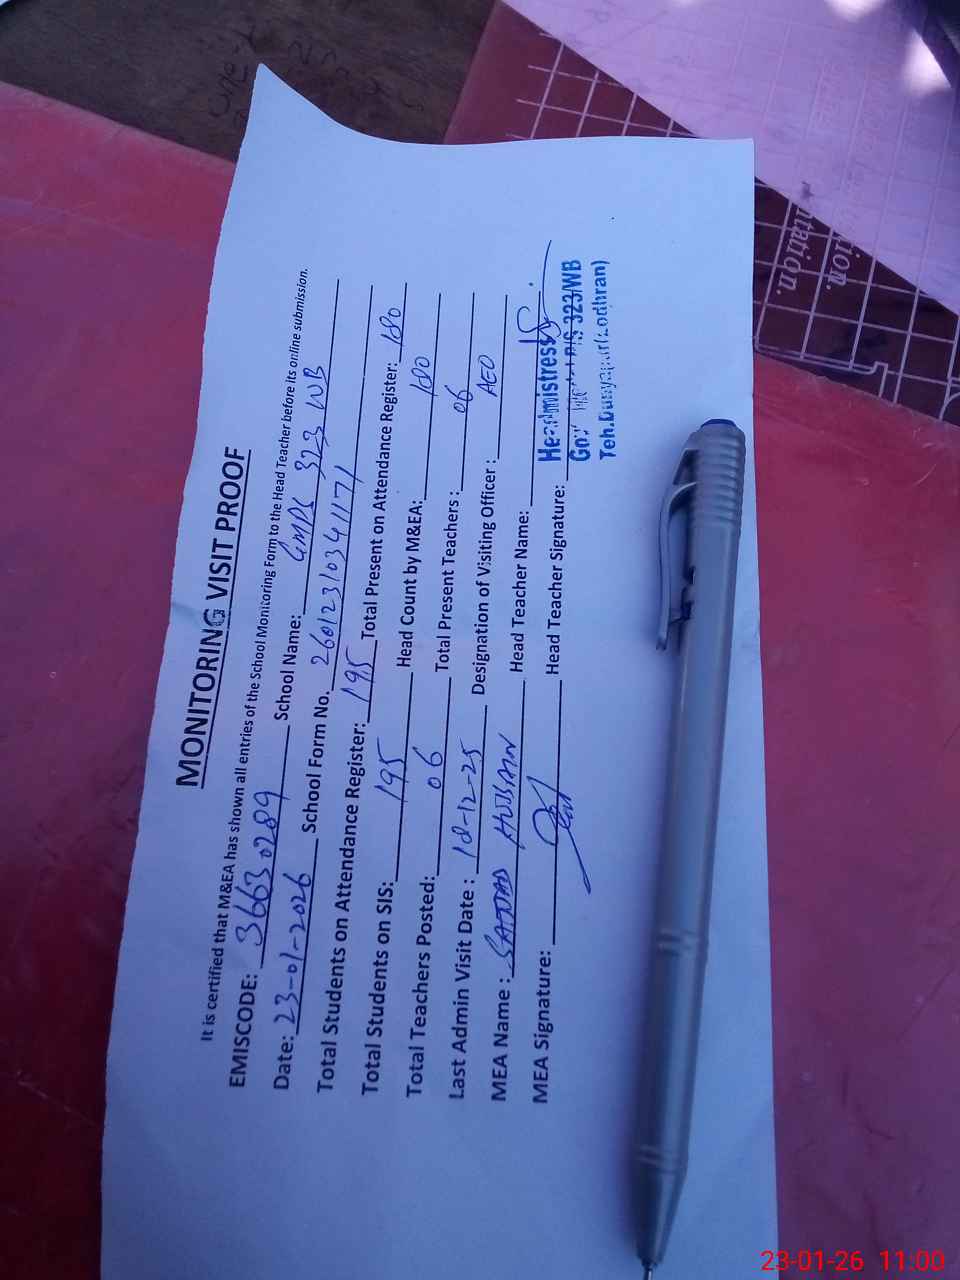 MONITORING VISIT PROOF
It is certified that M&EA has shown all entries of the School Monitoring Form to the Head Teacher before its online submission.
EMISCODE: 36630289 School Name: GMPS 323 WB
Date: 23-01-2026 School Form No. 26012310341171
Total Students on Attendance Register: 195 Total Present on Attendance Register: 180
Total Students on SIS: 195 Head Count by M&EA: 180
Total Teachers Posted: 06 Total Present Teachers : 06
Last Admin Visit Date : 18-12-25 Designation of Visiting Officer : AEO
MEA Name : SAJJAD HUSSAIN Head Teacher Name:
MEA Signature: Head Teacher Signature:
Headmistress
323/WB
Teh.Dunyapur(Lodhran)
ntation.
on.
23-01-26 11:00